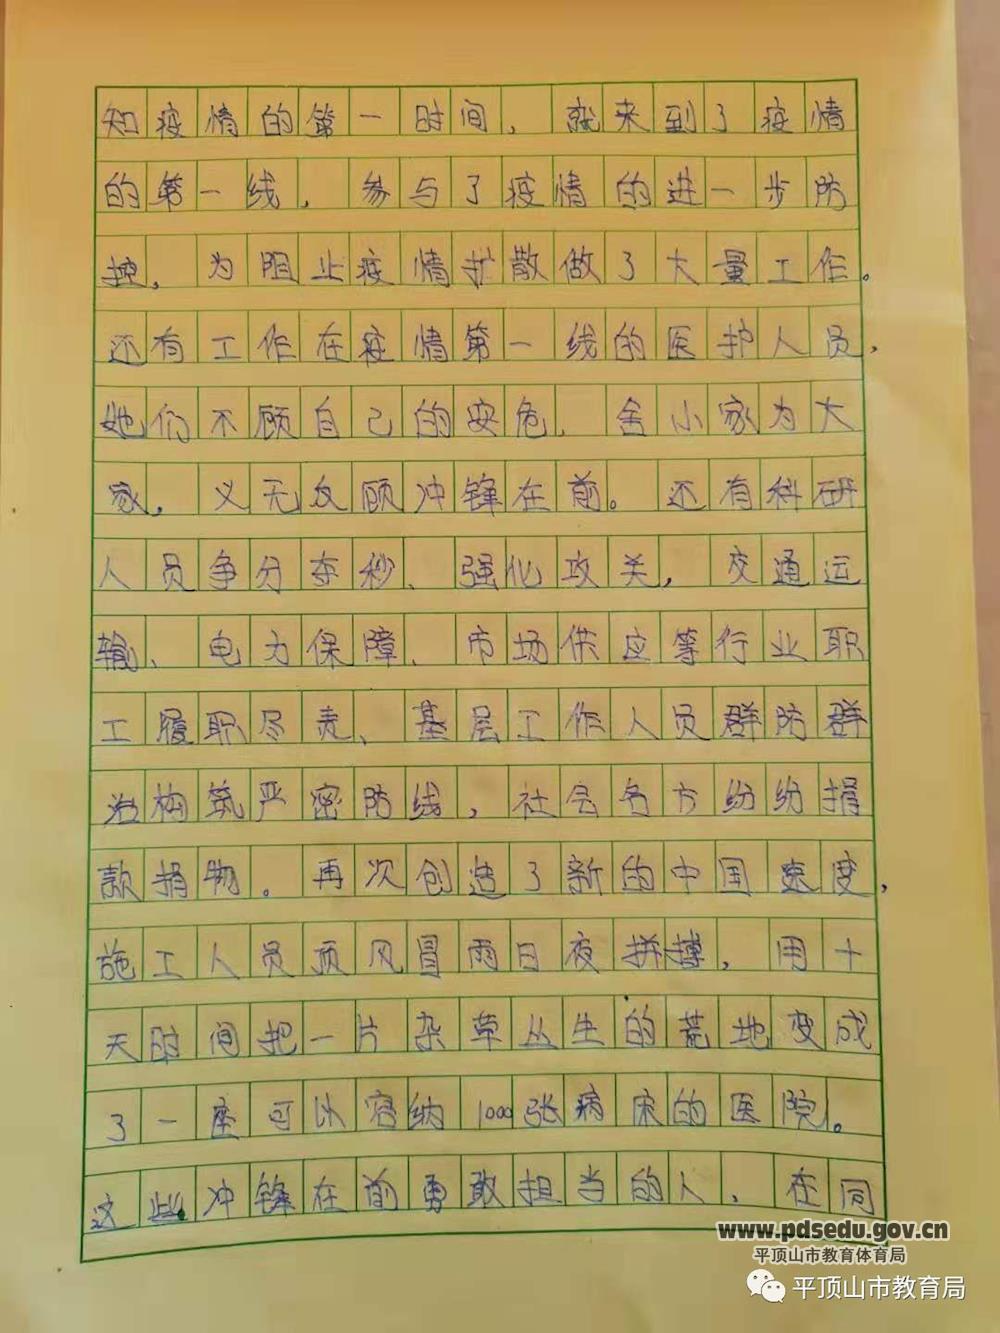 知疫情的第一时间，就来到了疫情
的第一线，参与了疫情的进一步防
控，为阻止疫情扩散做了大量工作。
还有工作在疫情第一线的医护人员，
她们不顾自己的安危、舍小家为大
家，义无反顾冲锋在前。还有科研
人员争分夺秒、强化攻关，交通运
输、电力保障、市场供应等行业职
工履职尽责、基层工作人员群防群
治构筑严密防线，社会各方纷纷捐
款捐物。再次创造了新的中国速度，
施工人员顶风冒雨日夜拼搏，用十
天时间把一片杂草丛生的荒地变成
了一座可以容纳1000张病床的医院。
这些冲锋在前勇敢担当的人，在同
www.pdsedu.gov.cn
平顶山市教育体育局
平顶山市教育局